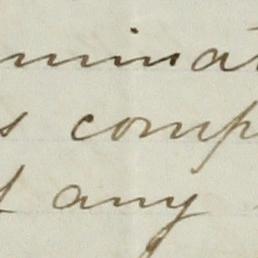 minat
s comp
any